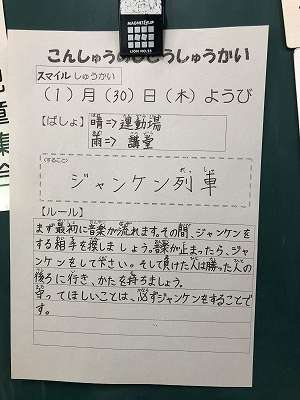 MAGNET CLIP
こんしゅうのじどうしゅうかい
スマイルしゅうかい
(1)月(30)日(木)ようび
【ばしょ】晴⇒運動場
雨⇒講堂
(すること)
ジャンケン列車
【ルール】
まず最初に音楽が流れます。その間、ジャンケンを
する相手を探しましょう。音楽が止まったら、ジャ
ンケンをして下さい。そして負けた人は勝った人の
後ろに行き、かたを持ちましょう。
守ってほしいことは、必ずジャンケンをすることで
す。